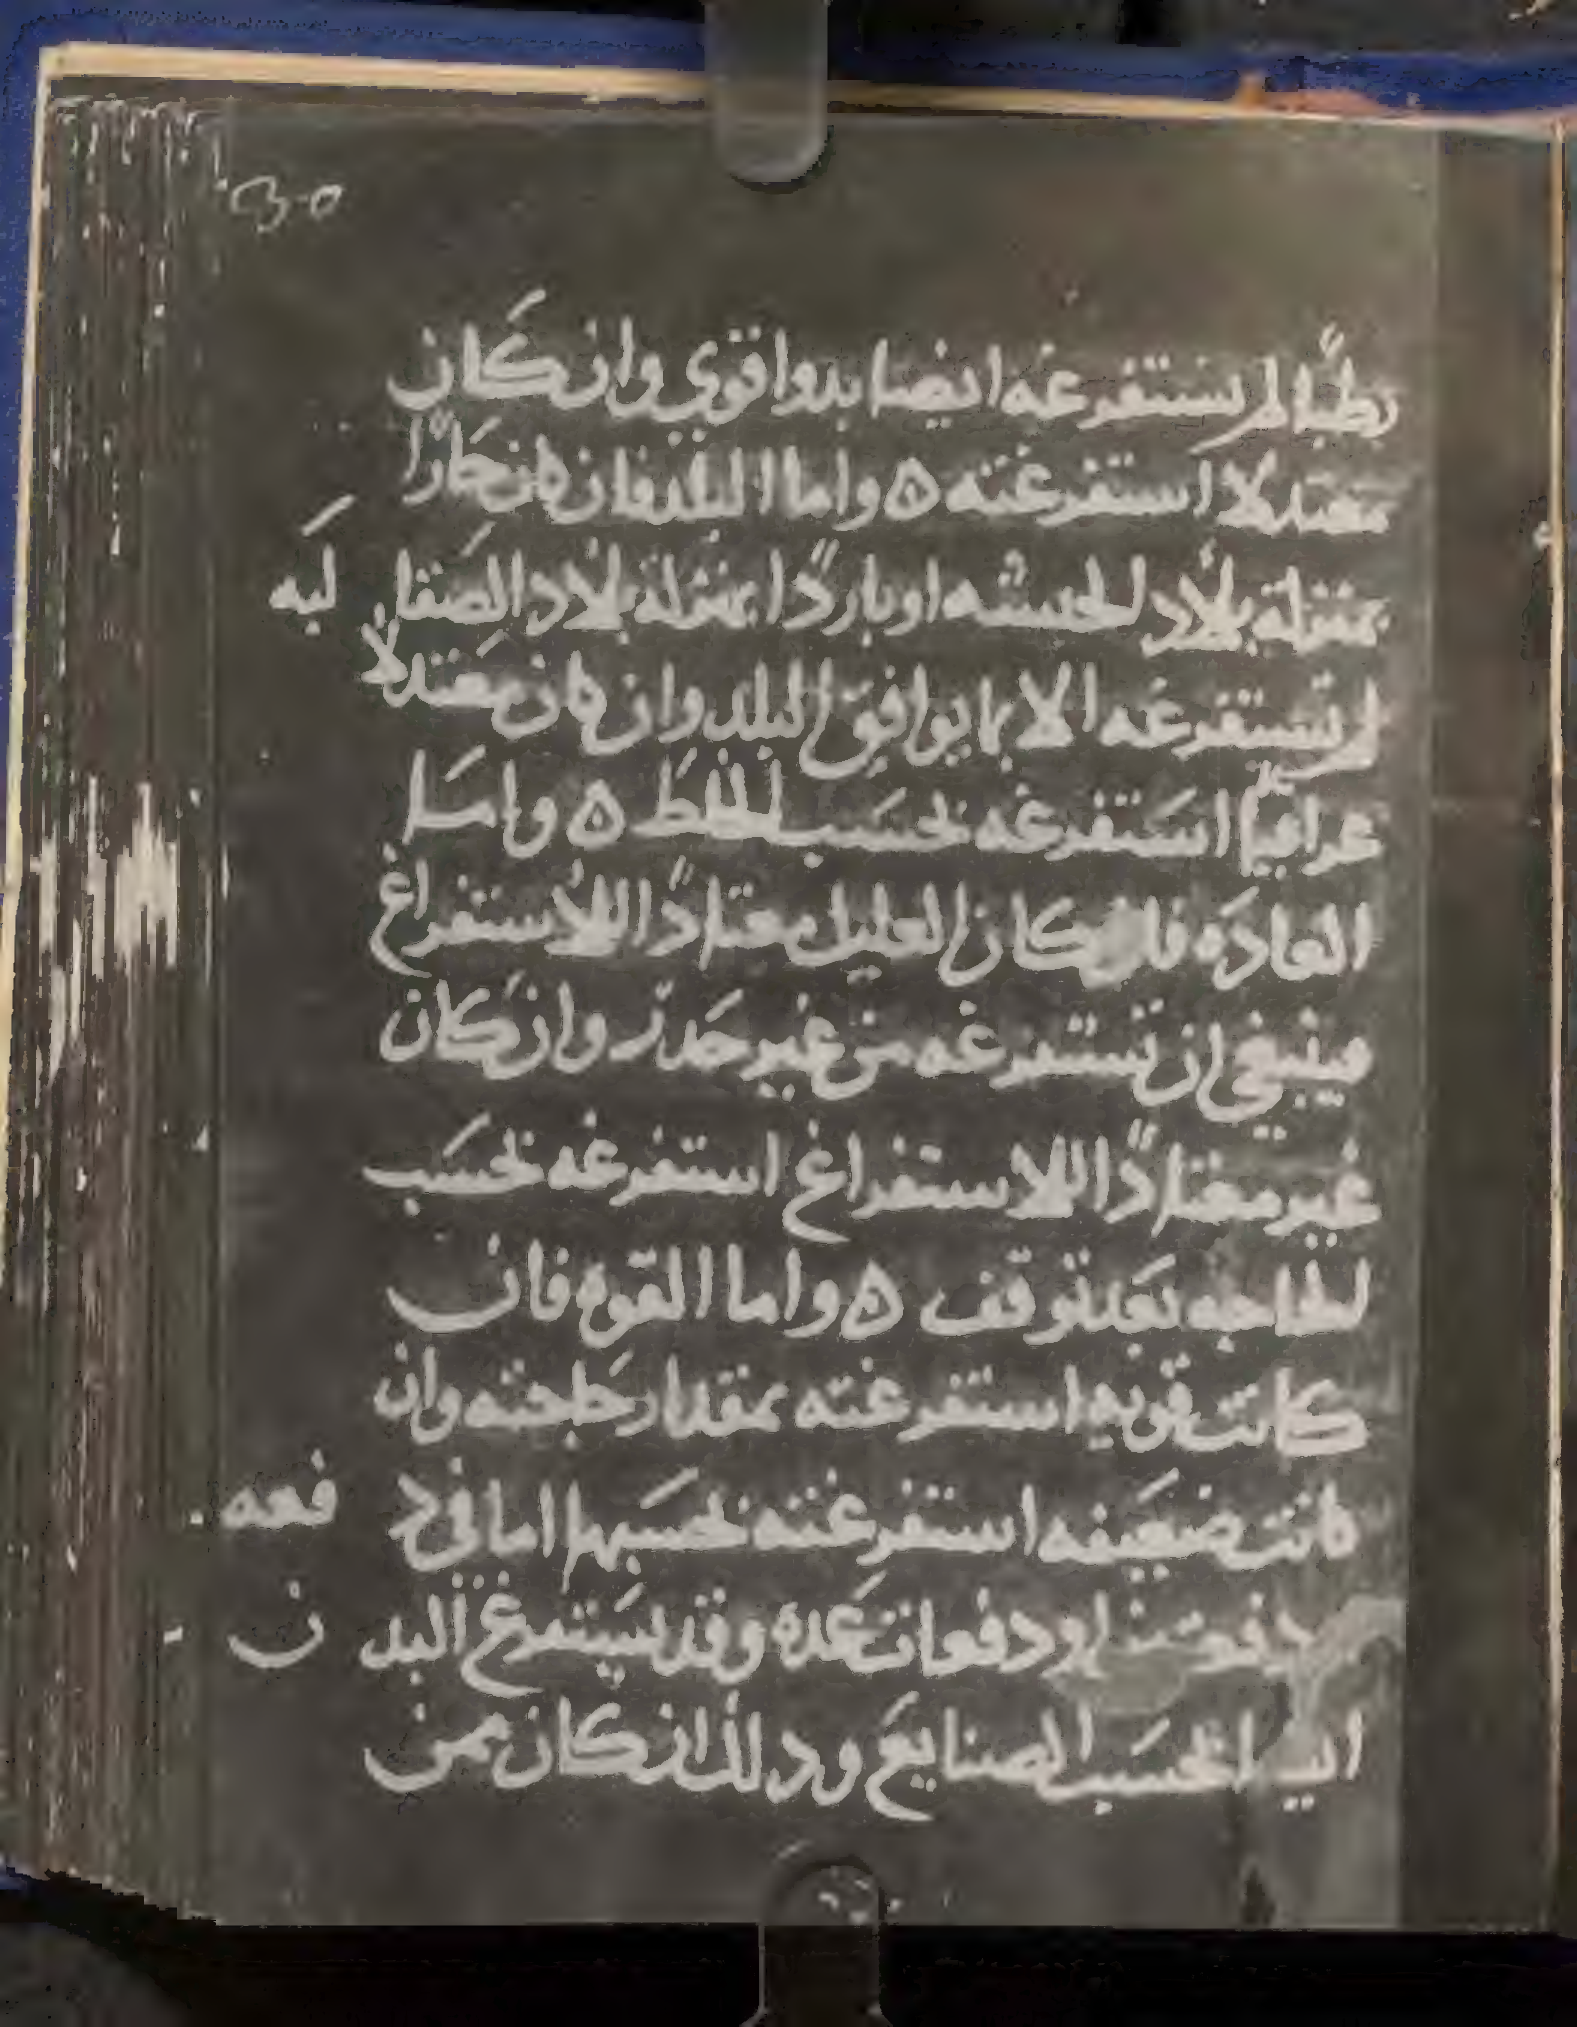 رطبًا لم نستفرغه ايضا بدوا قوي وان كان
معتدلا استفرغته ه واما البلد فان كان حَارًا
بمنزلة بلاد الحبشه او باردًا بمنزلة بلاد الصَقا لبَه
لم نستفرغه الا بما يوافق البلد وان كان معتدلًا
عراقيًا استفرغه بحسَب الخلط ه واما
العادَه فان كان العليل معتادًا للاستفراغ
فينبغي ان تستفرغه من غير حَذر وان كان
غير معتادًا للاستفراغ استفرغه بحسَب
الحاجه بَعد توقف ه واما القوه فان
كانت قويه استفرغته بمقدار حاجته وان
كانت ضعيفه استفرغته بحسَبها اما في د فعه
دفعتين او دفعات عده وقد يستفرغ البد ن
ايضا بحسَب الصنايع وذلك ان كان ممن